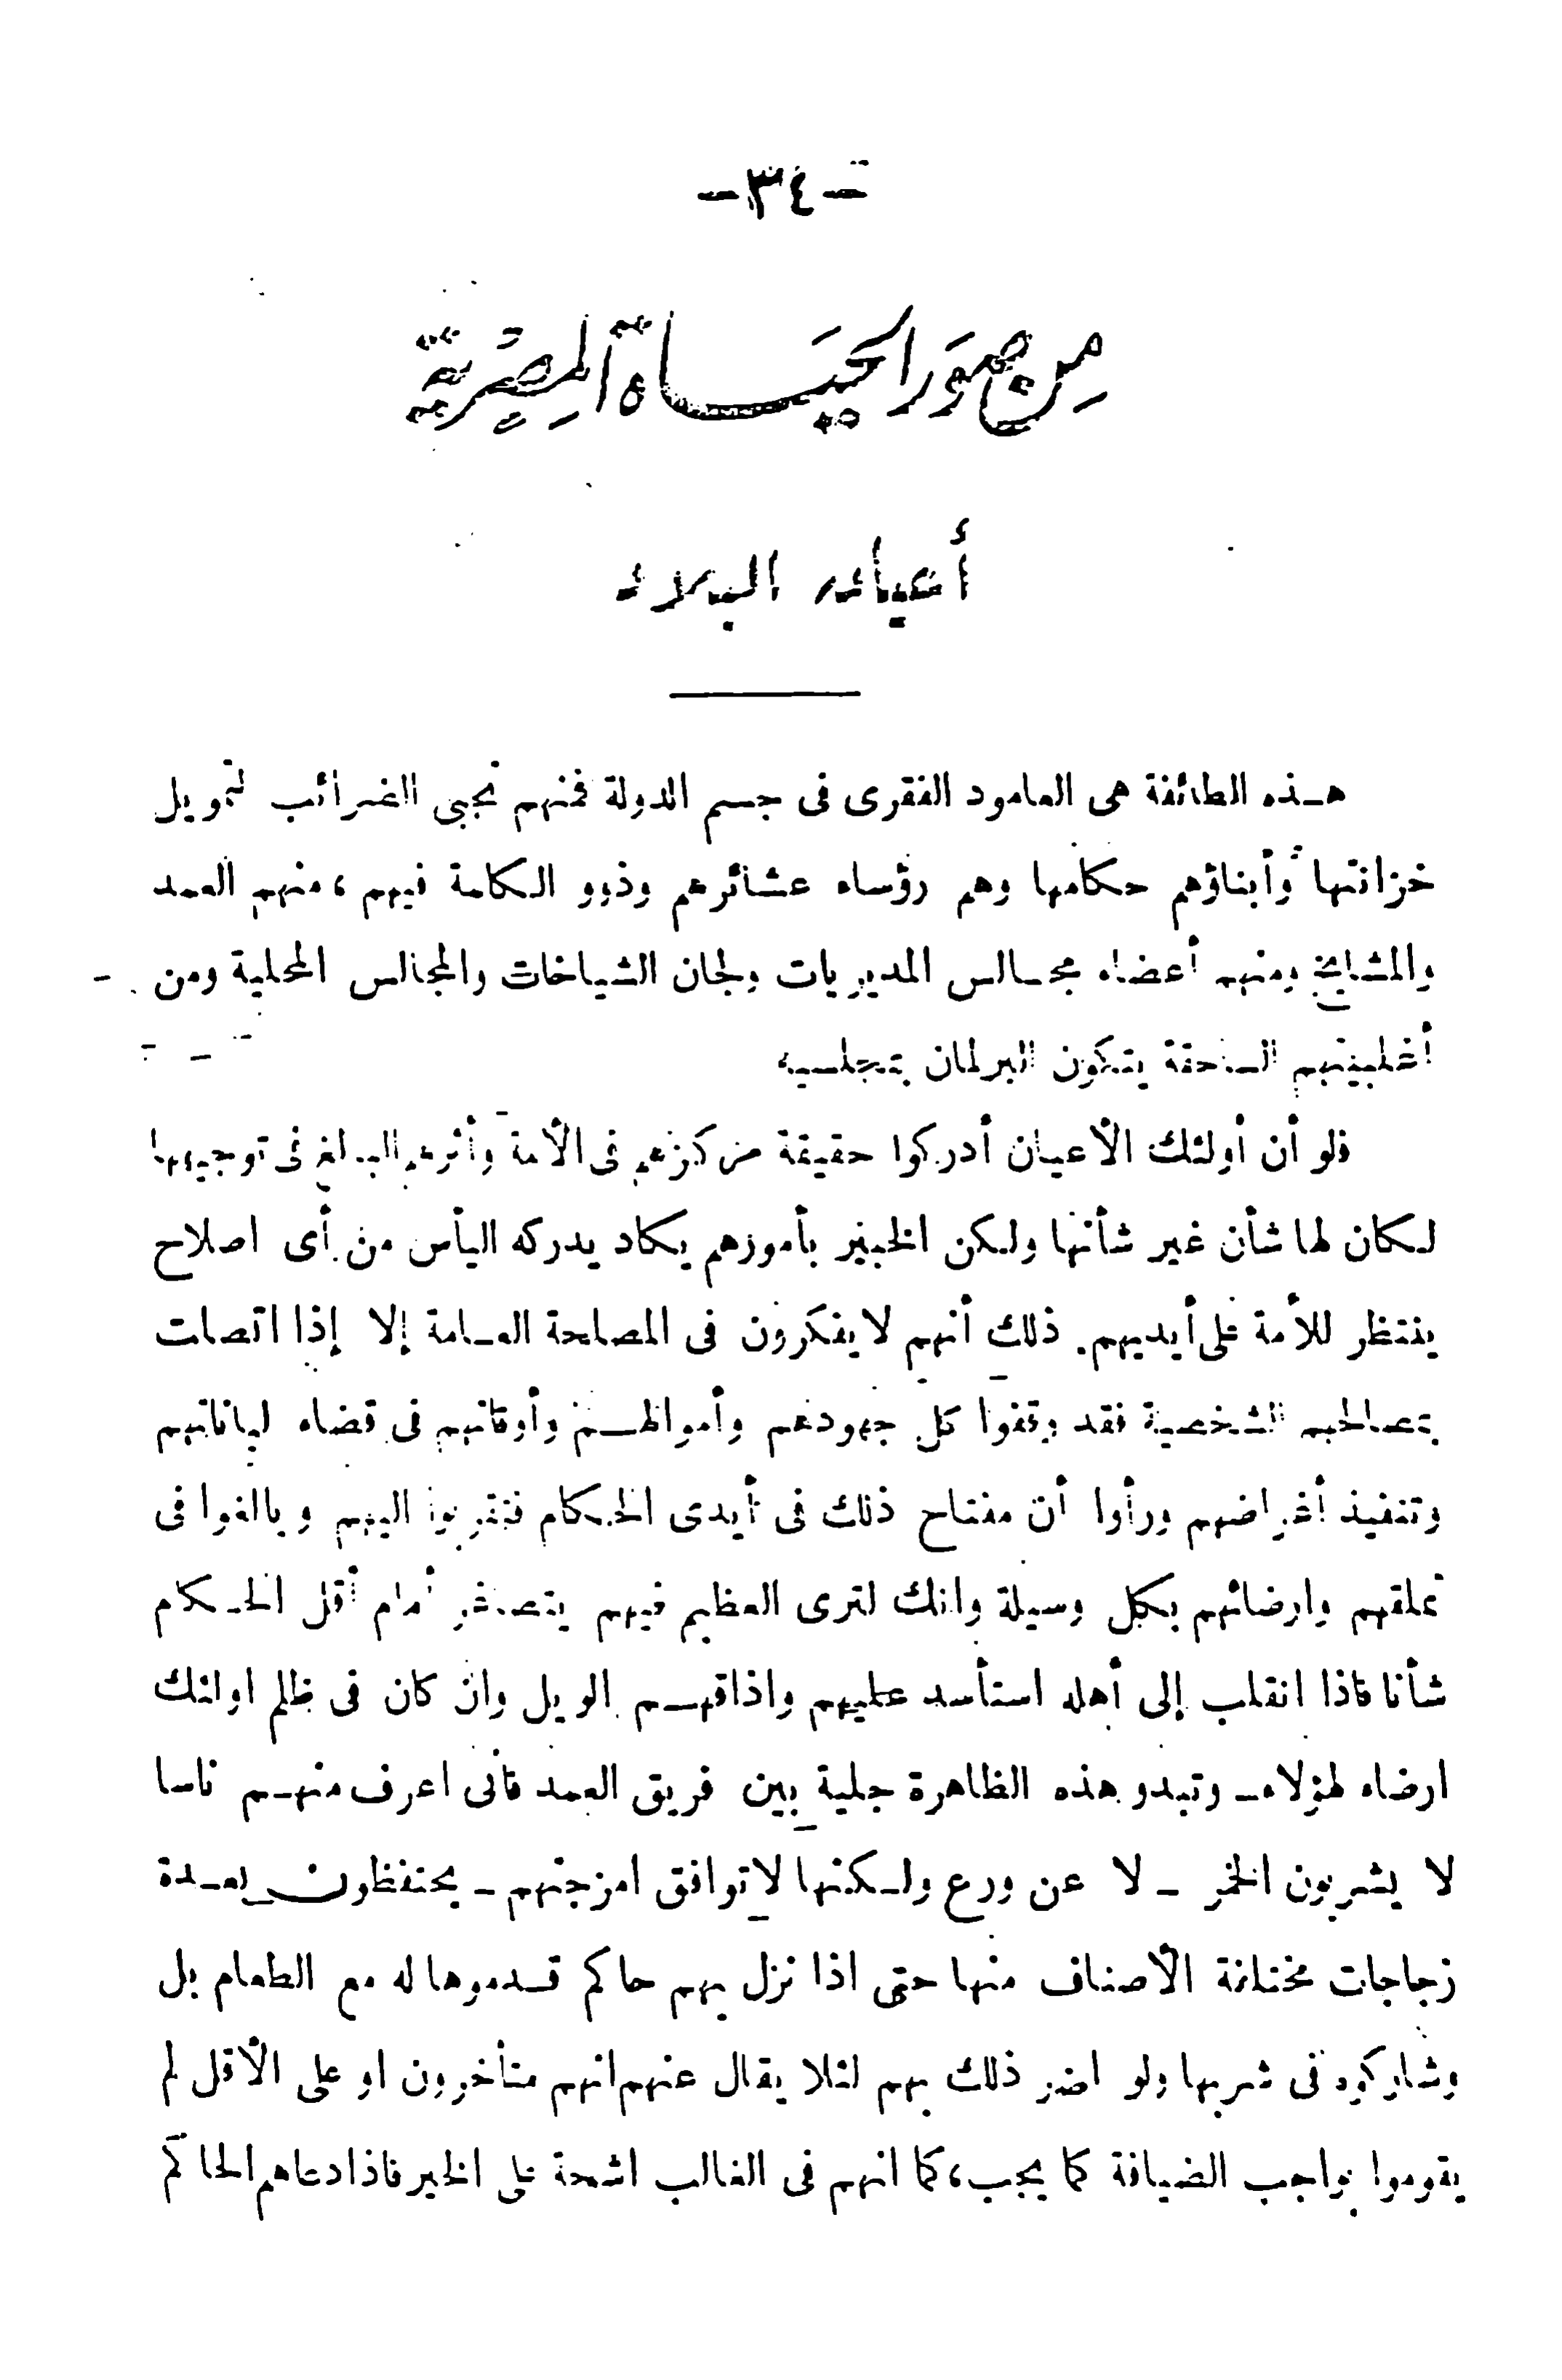 — ٣٤ —
مِن صُوَر الحَيَاة المِصْرِيَّة
أعيان البلاد
هذه الطائفة هى العامود الفقرى فى جسم الدولة فمنهم تجبى الضرائب لتمويل
خزانتها وأبناؤهم حكامها وهم رؤساء عشائرهم وذوو الكلمة فيهم ، منهم العمد
والمشايخ ومنهم أعضاء مجالس المديريات ولجان الشياخات والمجالس المحلية ومن
أغلبيتهم الساحقة يتكون البرلمان بمجلسيه
فلو أن أولئك الأعيان أدركوا حقيقة مركزهم فى الأمة وأثرهم البالغ فى توجيهها
لكان لها شأن غير شأنها ولكن الخبير بأمورهم يكاد يدركه اليأس من أى اصلاح
ينتظر للأمة على أيديهم. ذلك أنهم لا يفكرون فى المصلحة العامة إلا إذا اتصلت
بمصالحهم الشخصية فقد وقفوا كل جهودهم وأموالهم وأوقاتهم فى قضاء لباناتهم
وتنفيذ أغراضهم ورأوا أن مفتاح ذلك فى أيدى الحكام فتقربوا اليهم وبالغوا فى
تملقهم وارضائهم بكل وسيلة وانك لترى العظيم فيهم يتصاغر أمام أقل الحكام
شأنا فاذا انقلب إلى أهله استأسد عليهم واذاقهم الويل وان كان فى ظلم اولئك
ارضاء لهؤلاء ـ وتبدو هذه الظاهرة جلية بين فريق العمد فانى اعرف منهم ناسا
لا يشربون الخمر ـ لا عن ورع ولكنها لا توافق امزجتهم ـ يحتفظون بعدة
زجاجات مختلفة الأصناف منها حتى اذا نزل بهم حاكم قدموها له مع الطعام بل
وشاركوه فى شربها ولو اضر ذلك بهم لئلا يقال عنهم انهم متأخرون او على الأقل لم
يقوموا بواجب الضيافة كما يجب ، كما انهم فى الغالب اشحة على الخير فاذا دعاهم الحاكم